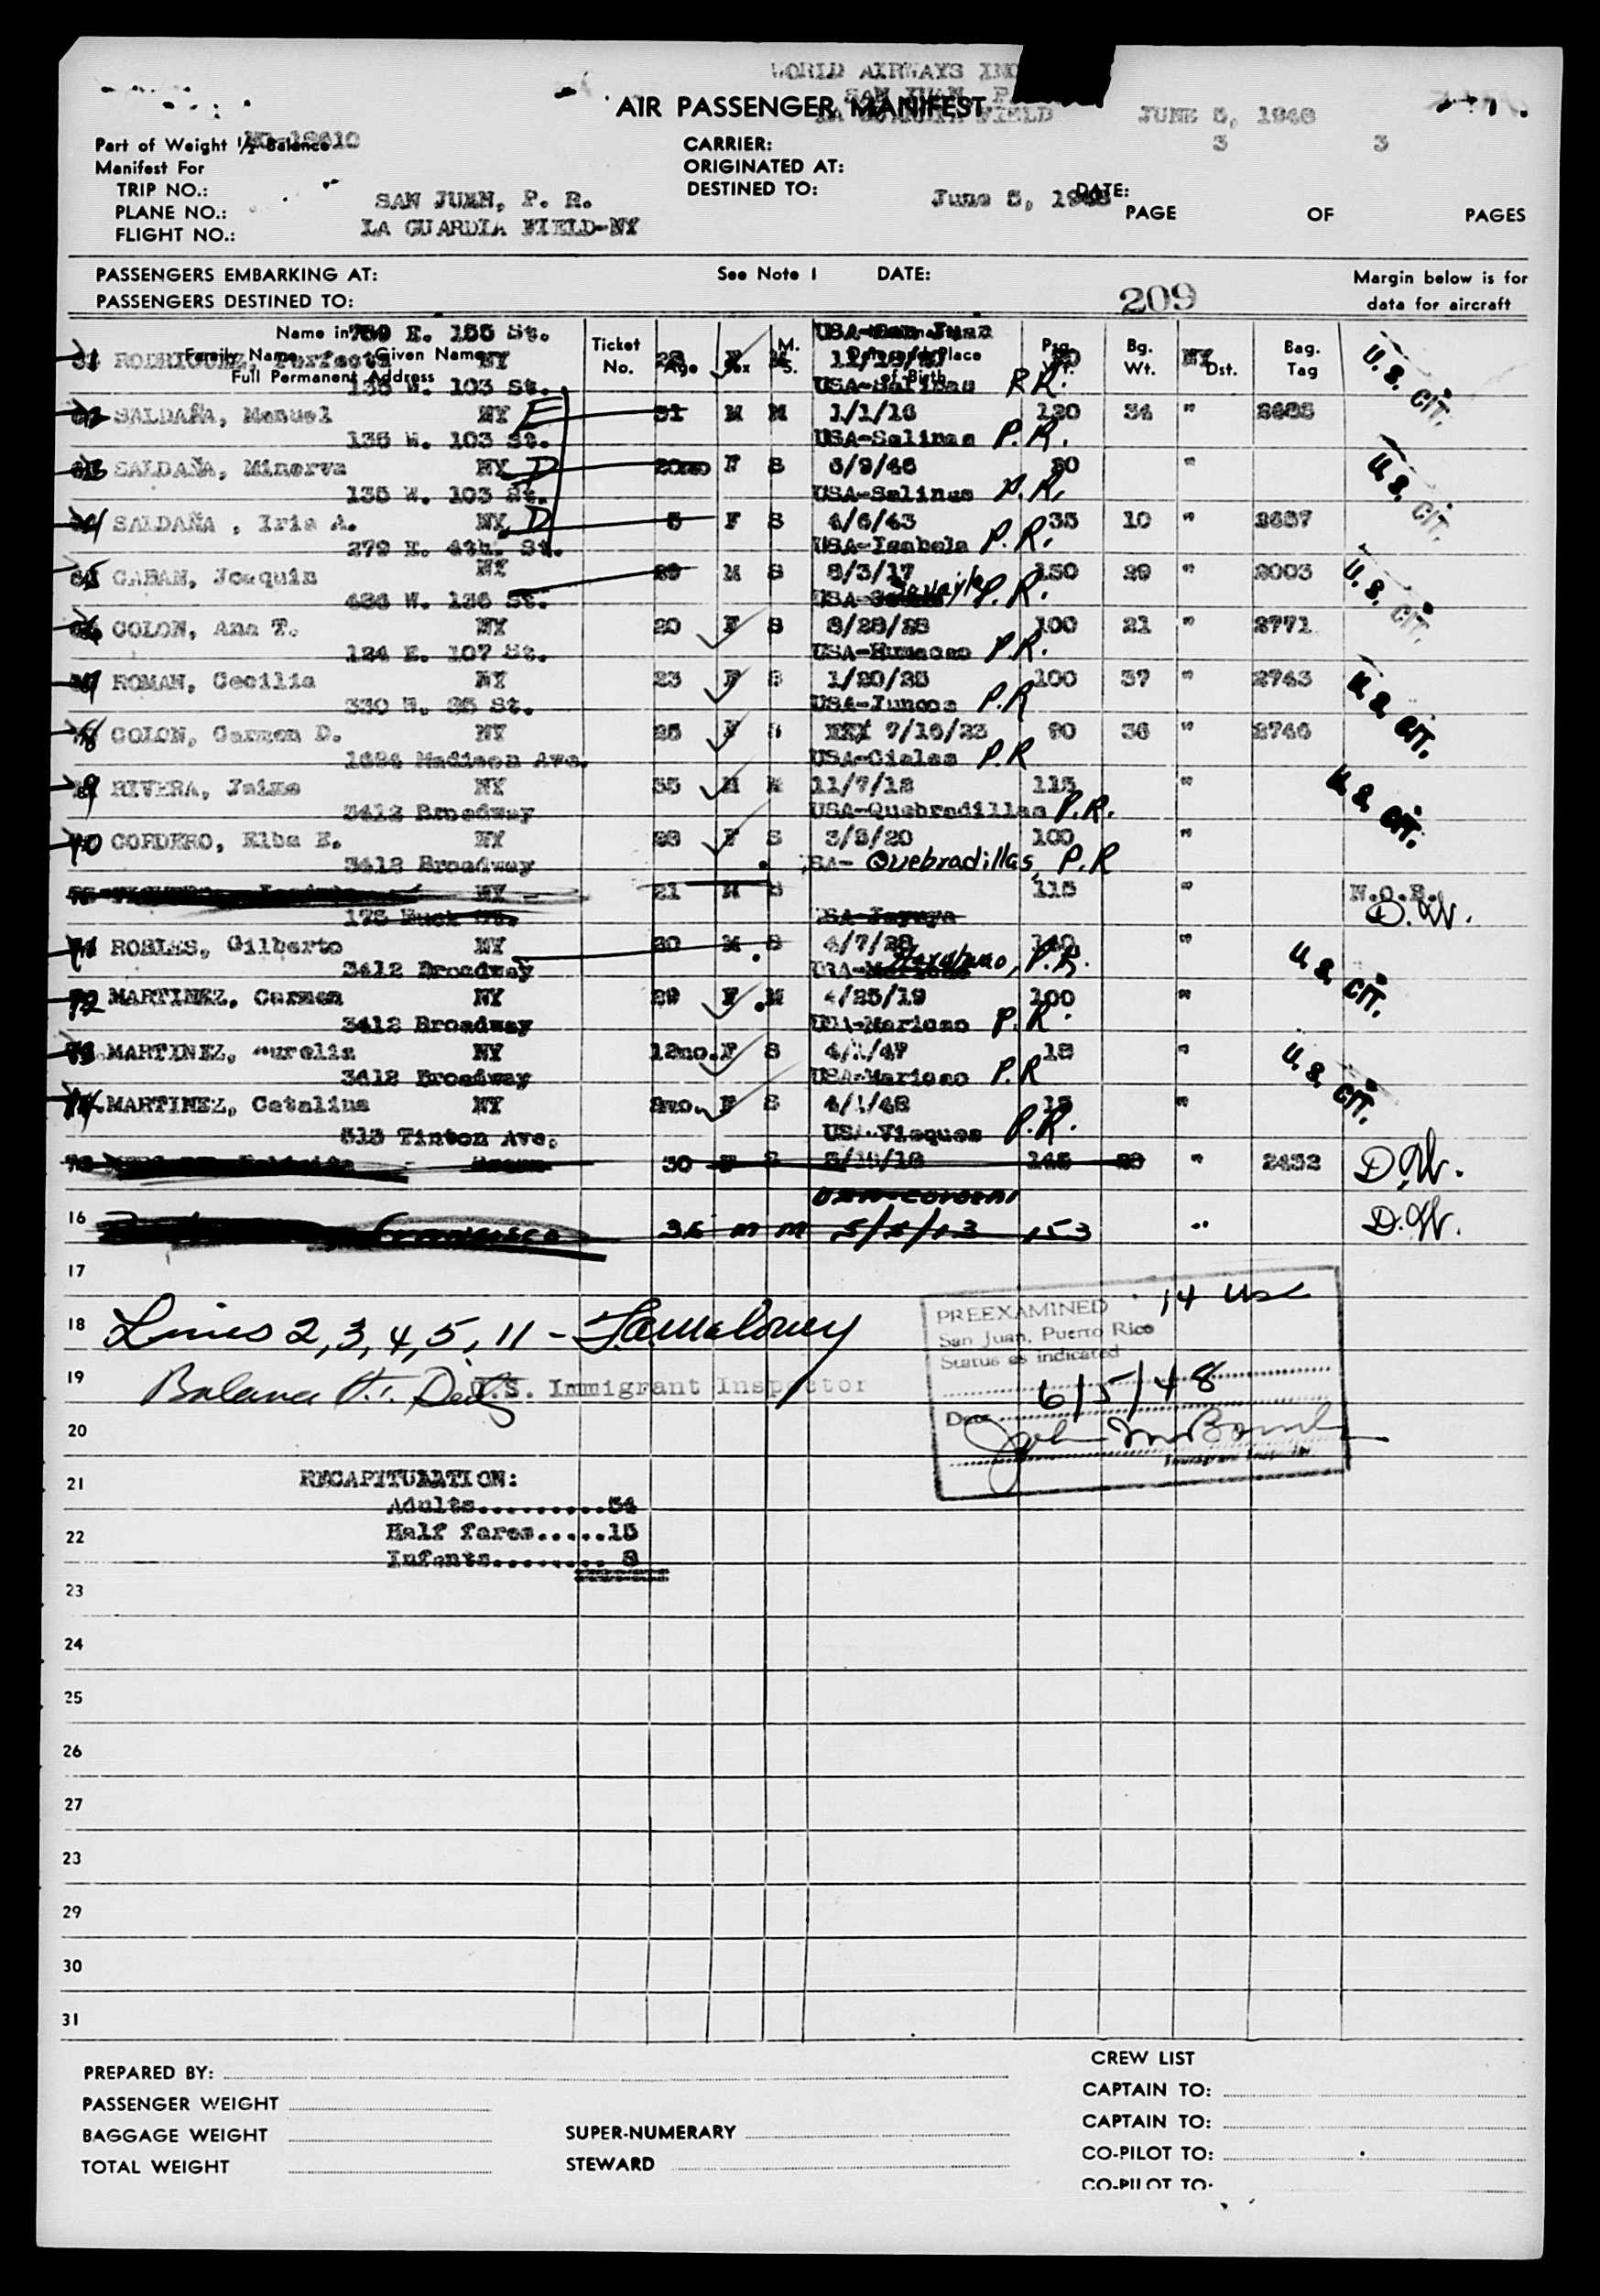 WORLD AIRWAYS INC
SAN JUAN, P.
AIR PASSENGER MANIFEST
LA GUARDIA FIELD JUNE 5, 1948
Part of Weight ½ Balance CARRIER: 3 3
Manifest For ORIGINATED AT:
TRIP NO.: DESTINED TO: June 5, 1948 DATE:
SAN JUAN, P. R.
PLANE NO.: PAGE OF PAGES
LA GUARDIA FIELD-NY
FLIGHT NO.:
PASSENGERS EMBARKING AT: See Note 1 DATE: Margin below is for
PASSENGERS DESTINED TO: 209 data for aircraft
Name in 789 E. 155 St. USA-San Juan
Family Name Given Name Ticket No. Age Sex M. S. Date and Place of Birth Bg. Wt. Dst. Bag. Tag
RODRIGUEZ, Perfecta NY 28 F M U. S. CIT.
Full Permanent Address
135 W. 103 St. USA-Salinas P.R.
SALDAÑA, Manuel NY E 31 M M 1/1/16 120 34 "
135 W. 103 St. USA-Salinas P.R.
SALDAÑA, Minerva NY D 20mo F S 6/9/46 "  U. S. CIT.
135 W. 103 St. USA-Salinas P.R.
SALDAÑA , Iris A. NY D 5 F S 4/6/43 35 10 "
279 E. 4th. St. USA-Isabela P.R.
CABAN, Joaquin NY 29 M S 8/3/17 150 29 " 2003 U. S. CIT.
P.R.
COLON, Ana T. NY 20 F S 8/28/28 100 21 " 2771
124 E. 107 St. USA-Humacao P.R.
ROMAN, Cecilia NY 23 F S 1/20/25 100 37 " 2743 U. S. CIT.
330 W. 25 St. USA-Juncos P.R
COLON, Carmen D. NY 25 F S 7/16/23 90 36 " 2746
Madison Ave. USA-Ciales P.R
RIVERA, Jaime NY 35 M M 11/7/12 115 " U. S. CIT.
3412 Broadway USA-Quebradillas P.R.
70 CORDERO, Elba E. NY 28 F S 3/8/20 100 "
3412 Broadway Quebradillas, P.R
NY 21 M S 115 " N.O.B.
175 USA-Jayuya D.W.
71 ROBLES, Gilberto NY 20 M S 4/7/28 140 " U. S. CIT.
3412 Broadway P.R.
72 MARTINEZ, Carmen NY 29 F M 4/25/19 100 "
3412 Broadway USA-Maricao P.R.
73 MARTINEZ, Aurelia NY 12mo. F S 4/1/47 18 " U. S. CIT.
3412 Broadway USA-Maricao P.R
74 MARTINEZ, Catalina NY F S 4/1/48 15 "
515 Tinton Ave. USA-Vieques P.R.
30 F S 145 29 " 2452 D.W.
16 Francisco 35 m m 5/5/13 153 " D.W.
17
PREEXAMINED 14 USC
18 Lines 2, 3, 4, 5, 11 -
San Juan, Puerto Rico
Status as indicated
19 Balance U.S. Immigrant Inspector
Date 6/5/48
20
Immigrant Inspector
21 RECAPITULATION:
Adults..........54
22 Half fares.....15
Infants........ 8
23
24
25
26
27
23
29
30
31
CREW LIST
PREPARED BY:
CAPTAIN TO:
PASSENGER WEIGHT
CAPTAIN TO:
BAGGAGE WEIGHT SUPER-NUMERARY
CO-PILOT TO:
TOTAL WEIGHT STEWARD
CO-PILOT TO: